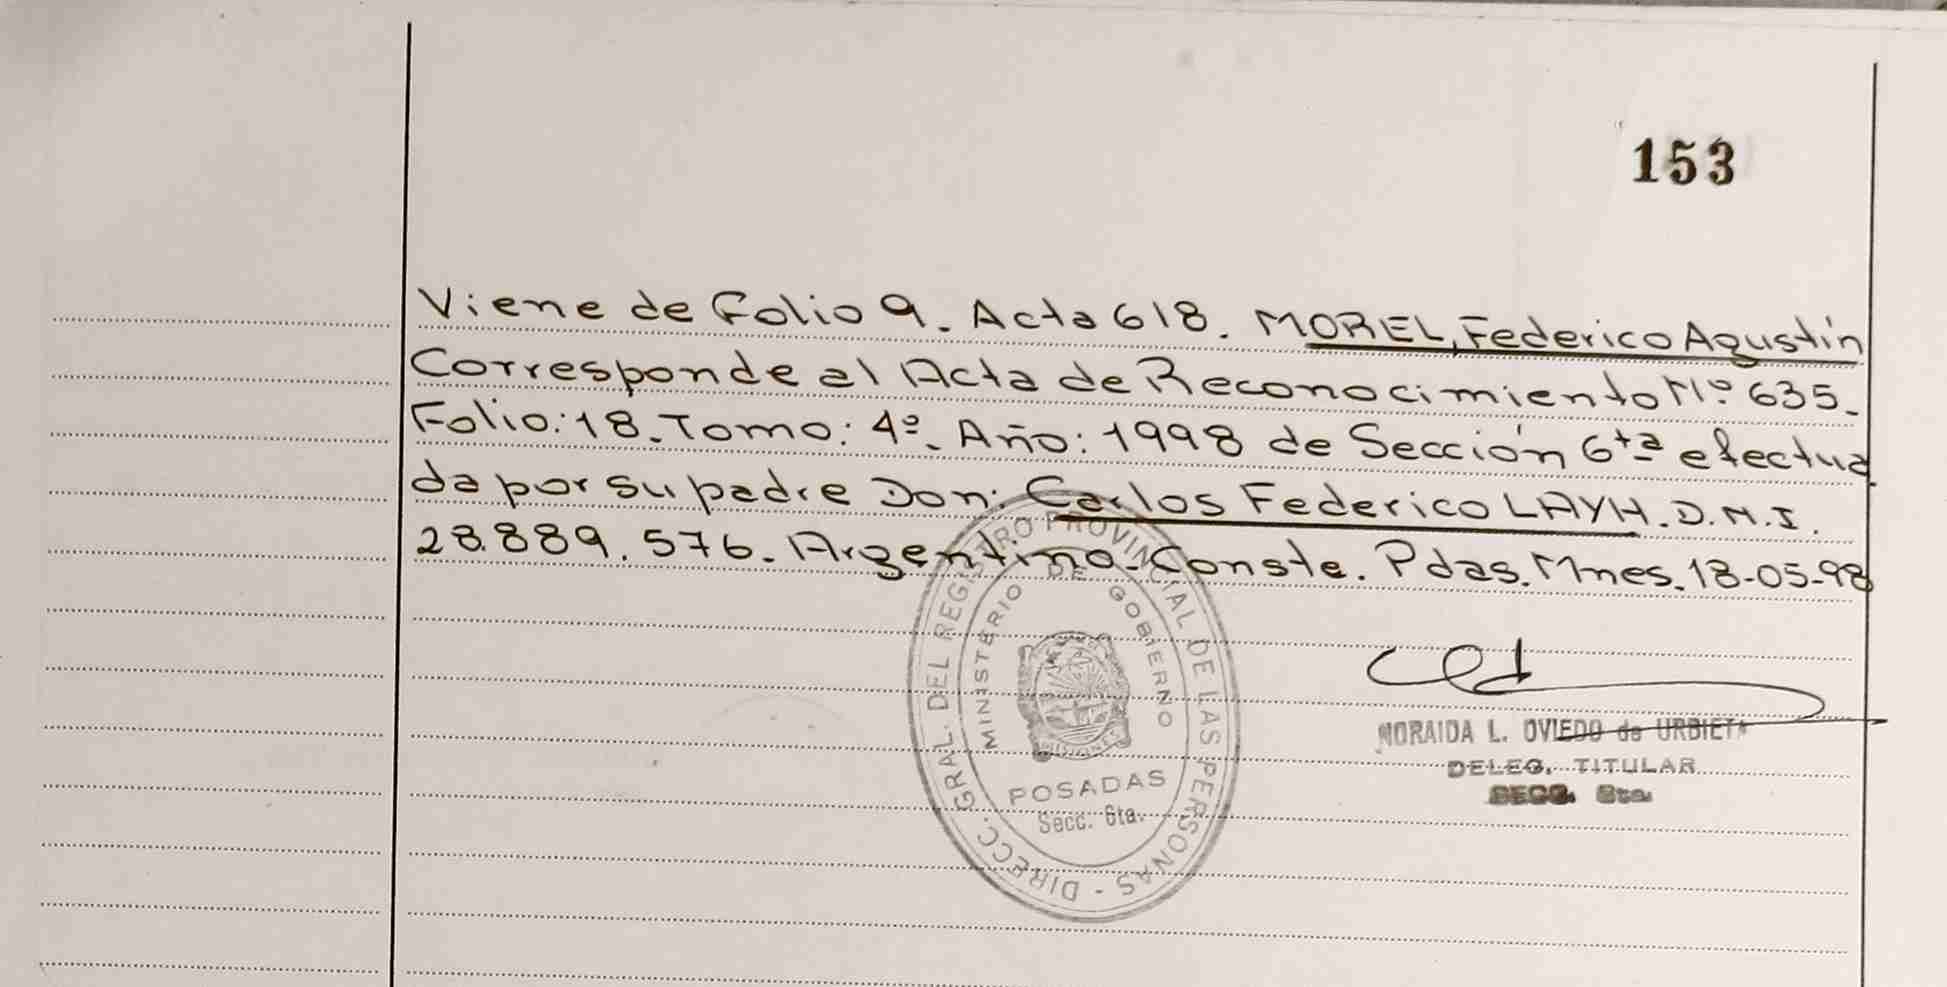 153
Viene de Folio 9. Acta 618. MOREL, Federico Agustín
Corresponde al Acta de Reconocimiento Nº 635.
Folio: 18. Tomo: 4º. Año: 1998 de Sección 6ta efectua
da por su padre Don: Carlos Federico LAYH. D.N.I.
28.889.576. Argentino. Conste. Pdas. Mnes. 18-05-98
DIRECC. GRAL. DEL REGISTRO PROVINCIAL DE LAS PERSONAS -
MINISTERIO DE GOBIERNO
MISIONES
POSADAS
Secc. 6ta.
NORAIDA L. OVIEDO de URBIETA
DELEG. TITULAR
SECC. 6ta.